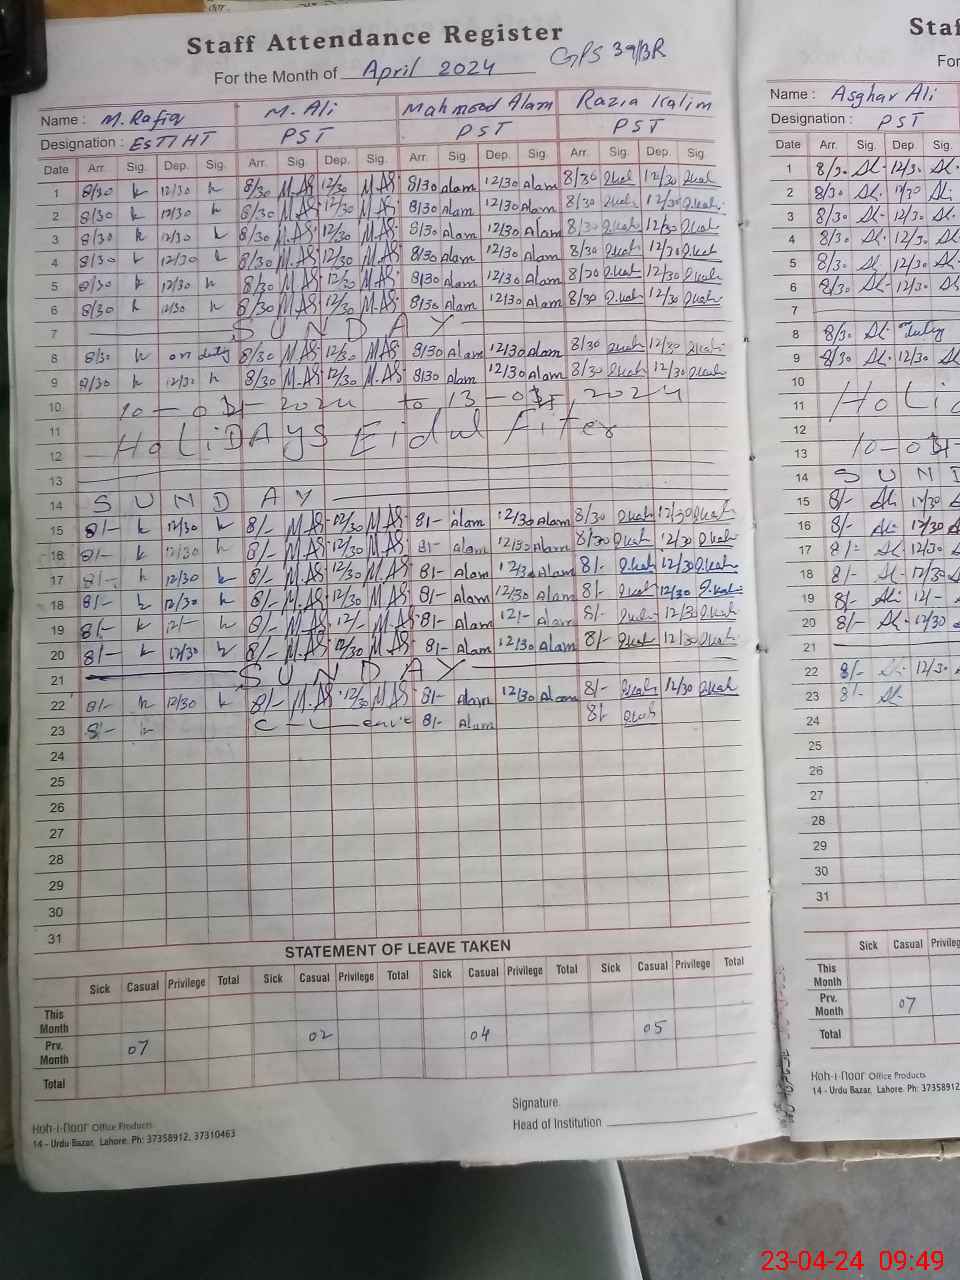 Staff Attendance Register
For the Month of April 2024 GPS 39/BR
Name : M. Rafiq M. Ali Mahmood Alam Razia Kalim
Designation : EST I HT PST PST PST
Date Arr. Sig. Dep. Sig. Arr. Sig. Dep. Sig. Arr. Sig. Dep. Sig. Arr. Sig. Dep. Sig.
1 8/30 12/30 8/30 M.Ali 12/30 M.Ali 8/30 Alam 12/30 Alam 8/30 12/30
2 8/30 12/30 8/30 M.Ali 12/30 M.Ali 8/30 Alam 12/30 Alam 8/30 12/30
3 8/30 12/30 8/30 M.Ali 12/30 M.Ali 8/30 Alam 12/30 Alam 8/30 12/30
4 8/30 12/30 8/30 M.Ali 12/30 M.Ali 8/30 Alam 12/30 Alam 8/30 12/30
5 8/30 12/30 8/30 M.Ali 12/30 M.Ali 8/30 Alam 12/30 Alam 8/30 12/30
6 8/30 12/30 8/30 M.Ali 12/30 M.Ali 8/30 Alam 12/30 Alam 8/30 12/30
7 SUNDAY
8 8/30 on duty 8/30 M.Ali 12/30 M.Ali 8/30 Alam 12/30 Alam 8/30 12/30
9 8/30 12/30 8/30 M.Ali 12/30 M.Ali 8/30 Alam 12/30 Alam 8/30 12/30
10 10-04-2024 to 13-04-2024
11 HoLiDAYS Eidul Fiter
12
13
14 SUNDAY
15 8/- 12/30 8/- M.Ali 12/30 M.Ali 8/- Alam 12/30 Alam 8/30 12/30
16 8/- 12/30 8/- M.Ali 12/30 M.Ali 8/- Alam 12/30 Alam 8/30 12/30
17 8/- 12/30 8/- M.Ali 12/30 M.Ali 8/- Alam 12/30 Alam 8/- 12/30
18 8/- 12/30 8/- M.Ali 12/30 M.Ali 8/- Alam 12/30 Alam 8/- 12/30
19 8/- 12/- 8/- M.Ali 12/- M.Ali 8/- Alam 12/- Alam 8/- 12/30
20 8/- 12/30 8/- M.Ali 12/30 M.Ali 8/- Alam 12/30 Alam 8/- 12/30
21 SUNDAY
22 8/- 12/30 8/- M.Ali 12/30 M.Ali 8/- Alam 12/30 Alam 8/- 12/30
23 8/- C-Leave 8/- Alam 8/-
24
25
26
27
28
29
30
31
STATEMENT OF LEAVE TAKEN
Sick Casual Privilege Total Sick Casual Privilege Total Sick Casual Privilege Total Sick Casual Privilege Total
This Month
Prv. Month 07 02 04 05
Total
Signature
Head of Institution
Koh-i-Noor Office Products
14 - Urdu Bazar, Lahore. Ph: 37358912, 37310463
Staf
For
Name : Asghar Ali
Designation : PST
Date Arr. Sig. Dep. Sig.
1 8/30 12/30
2 8/30 12/30
3 8/30 12/30
4 8/30 12/30
5 8/30 12/30
6 8/30 12/30
7
8 8/30 Duty
9 8/30 12/30
10
11 HoLi
12
13 10-04
14 SUND
15 8/- 12/30
16 8/- 12/30
17 8/- 12/30
18 8/- 12/30
19 8/- 12/-
20 8/- 12/30
21
22 8/- 12/30
23 8/-
24
25
26
27
28
29
30
31
Sick Casual Privileg
This Month
Prv. Month 07
Total
Koh-i-Noor Office Products
14 - Urdu Bazar, Lahore. Ph: 3735891
23-04-24 09:49